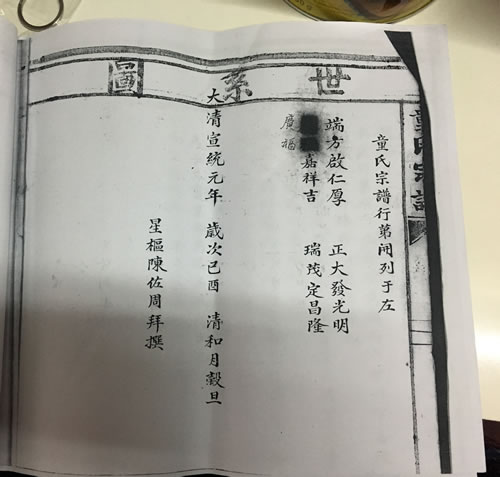 童氏宗譜
世系圖
童氏宗譜行第開列于左
端方啟仁厚 正大發光明
嘉祥吉 瑞茂定昌隆
廣福
大清宣統元年 歲次己酉 清和月穀旦
星樞陳佐周拜撰